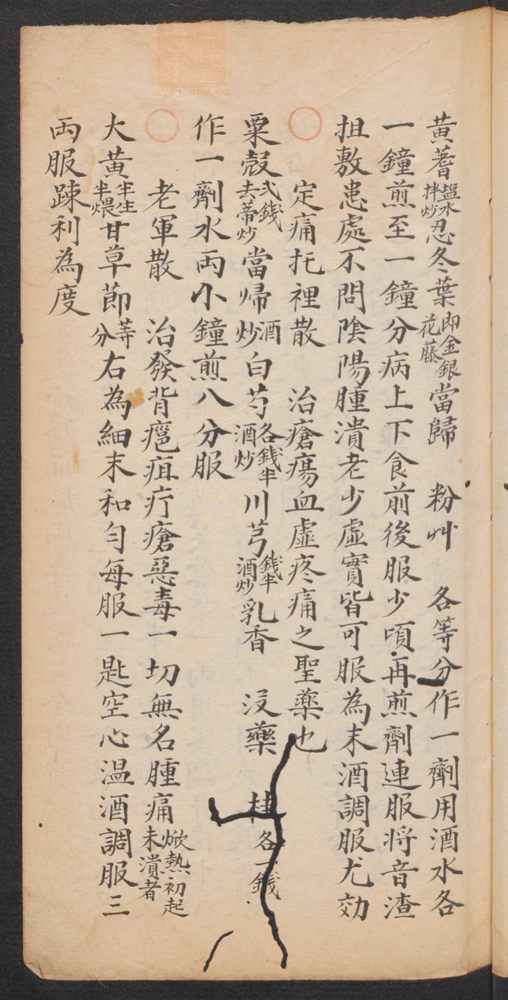 黃蓍塩水拌炒忍冬葉即金銀花藤當歸 粉艸 各等分作一劑用酒水各
一鐘煎至一鐘分病上下食前後服少頃再煎劑連服將音渣
担敷患處不問陰陽腫潰老少虛實皆可服為末酒調服尤効
○ 定痛托裡散 治瘡瘍血虛疼痛之聖藥也
粟殼弍錢去蒂炒當帰酒炒白芍各錢半酒炒川芎錢半酒炒乳香 沒藥 桂各一錢
作一劑水两小鐘煎八分服
○ 老軍散 治發背癰疽疔瘡惡毒一切無名腫痛焮熱初起未潰者
大黃半生半煨甘草節等分右為細末和匀每服一匙空心温酒調服三
两服踈利為度